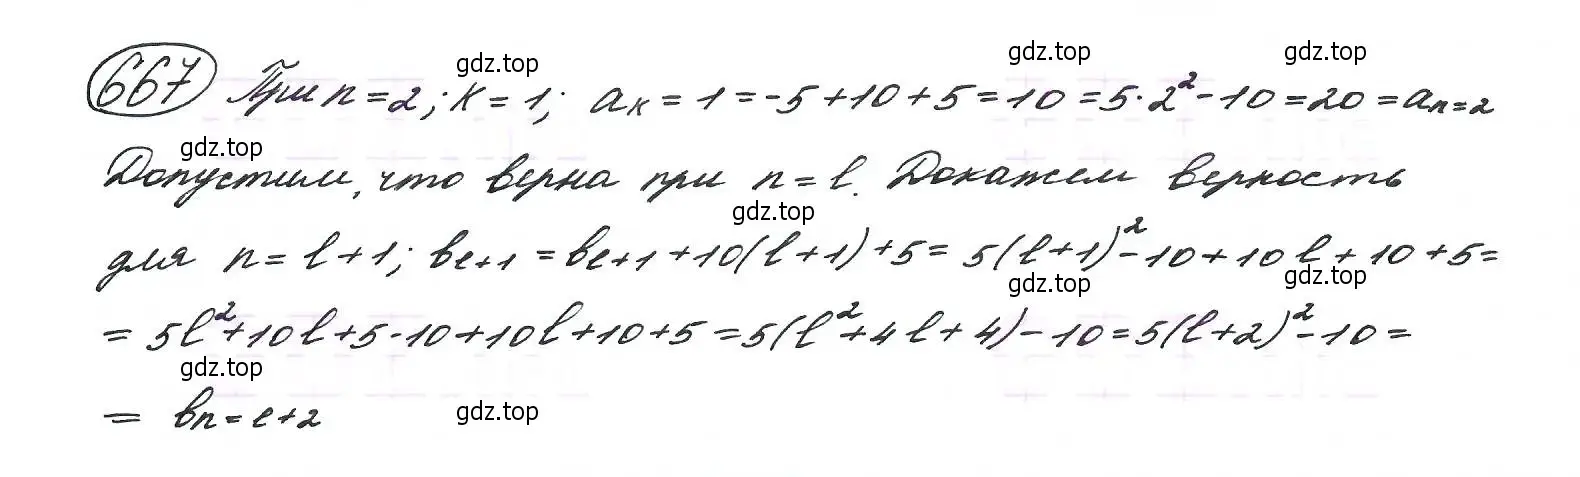 667 При n = 2; K = 1; aₖ = 1 = -5 + 10 + 5 = 10 = 5 · 2² - 10 = 20 = aₙ₌₂
Допустим, что верна при n = l. Докажем верность
для n = l + 1; bₗ₊₁ = bₗ₊₁ + 10(l + 1) + 5 = 5(l + 1)² - 10 + 10l + 10 + 5 =
= 5l² + 10l + 5 - 10 + 10l + 10 + 5 = 5(l² + 4l + 4) - 10 = 5(l + 2)² - 10 =
= bₙ₌ₗ₊₂
gdz.top
gdz.top
gdz.top
gdz.top
gdz.top
gdz.top
gdz.top
gdz.top
gdz.top